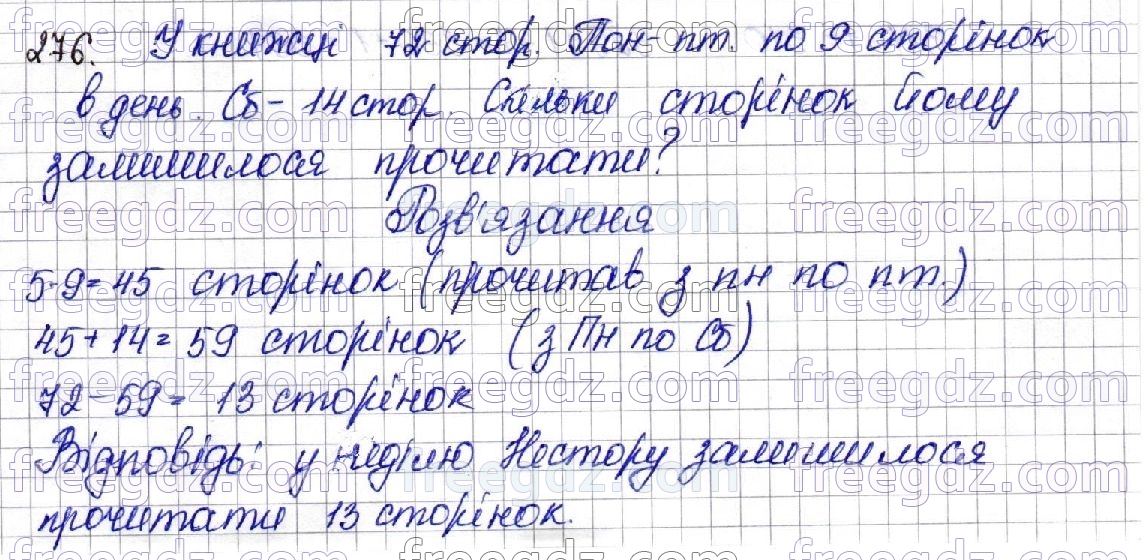 276. У книжці 72 стор. Пон-пт. по 9 сторінок
в день. Сб - 14 стор. Скільки сторінок йому
залишилося прочитати?
Розв'язання
5·9=45 сторінок (прочитав з пн по пт.)
45+14=59 сторінок (з Пн по Сб)
72-59= 13 сторінок
Відповідь: у неділю Нестору залишилося
прочитати 13 сторінок.